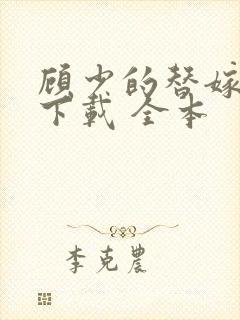 顾少的替嫁
下载 全本
李克农